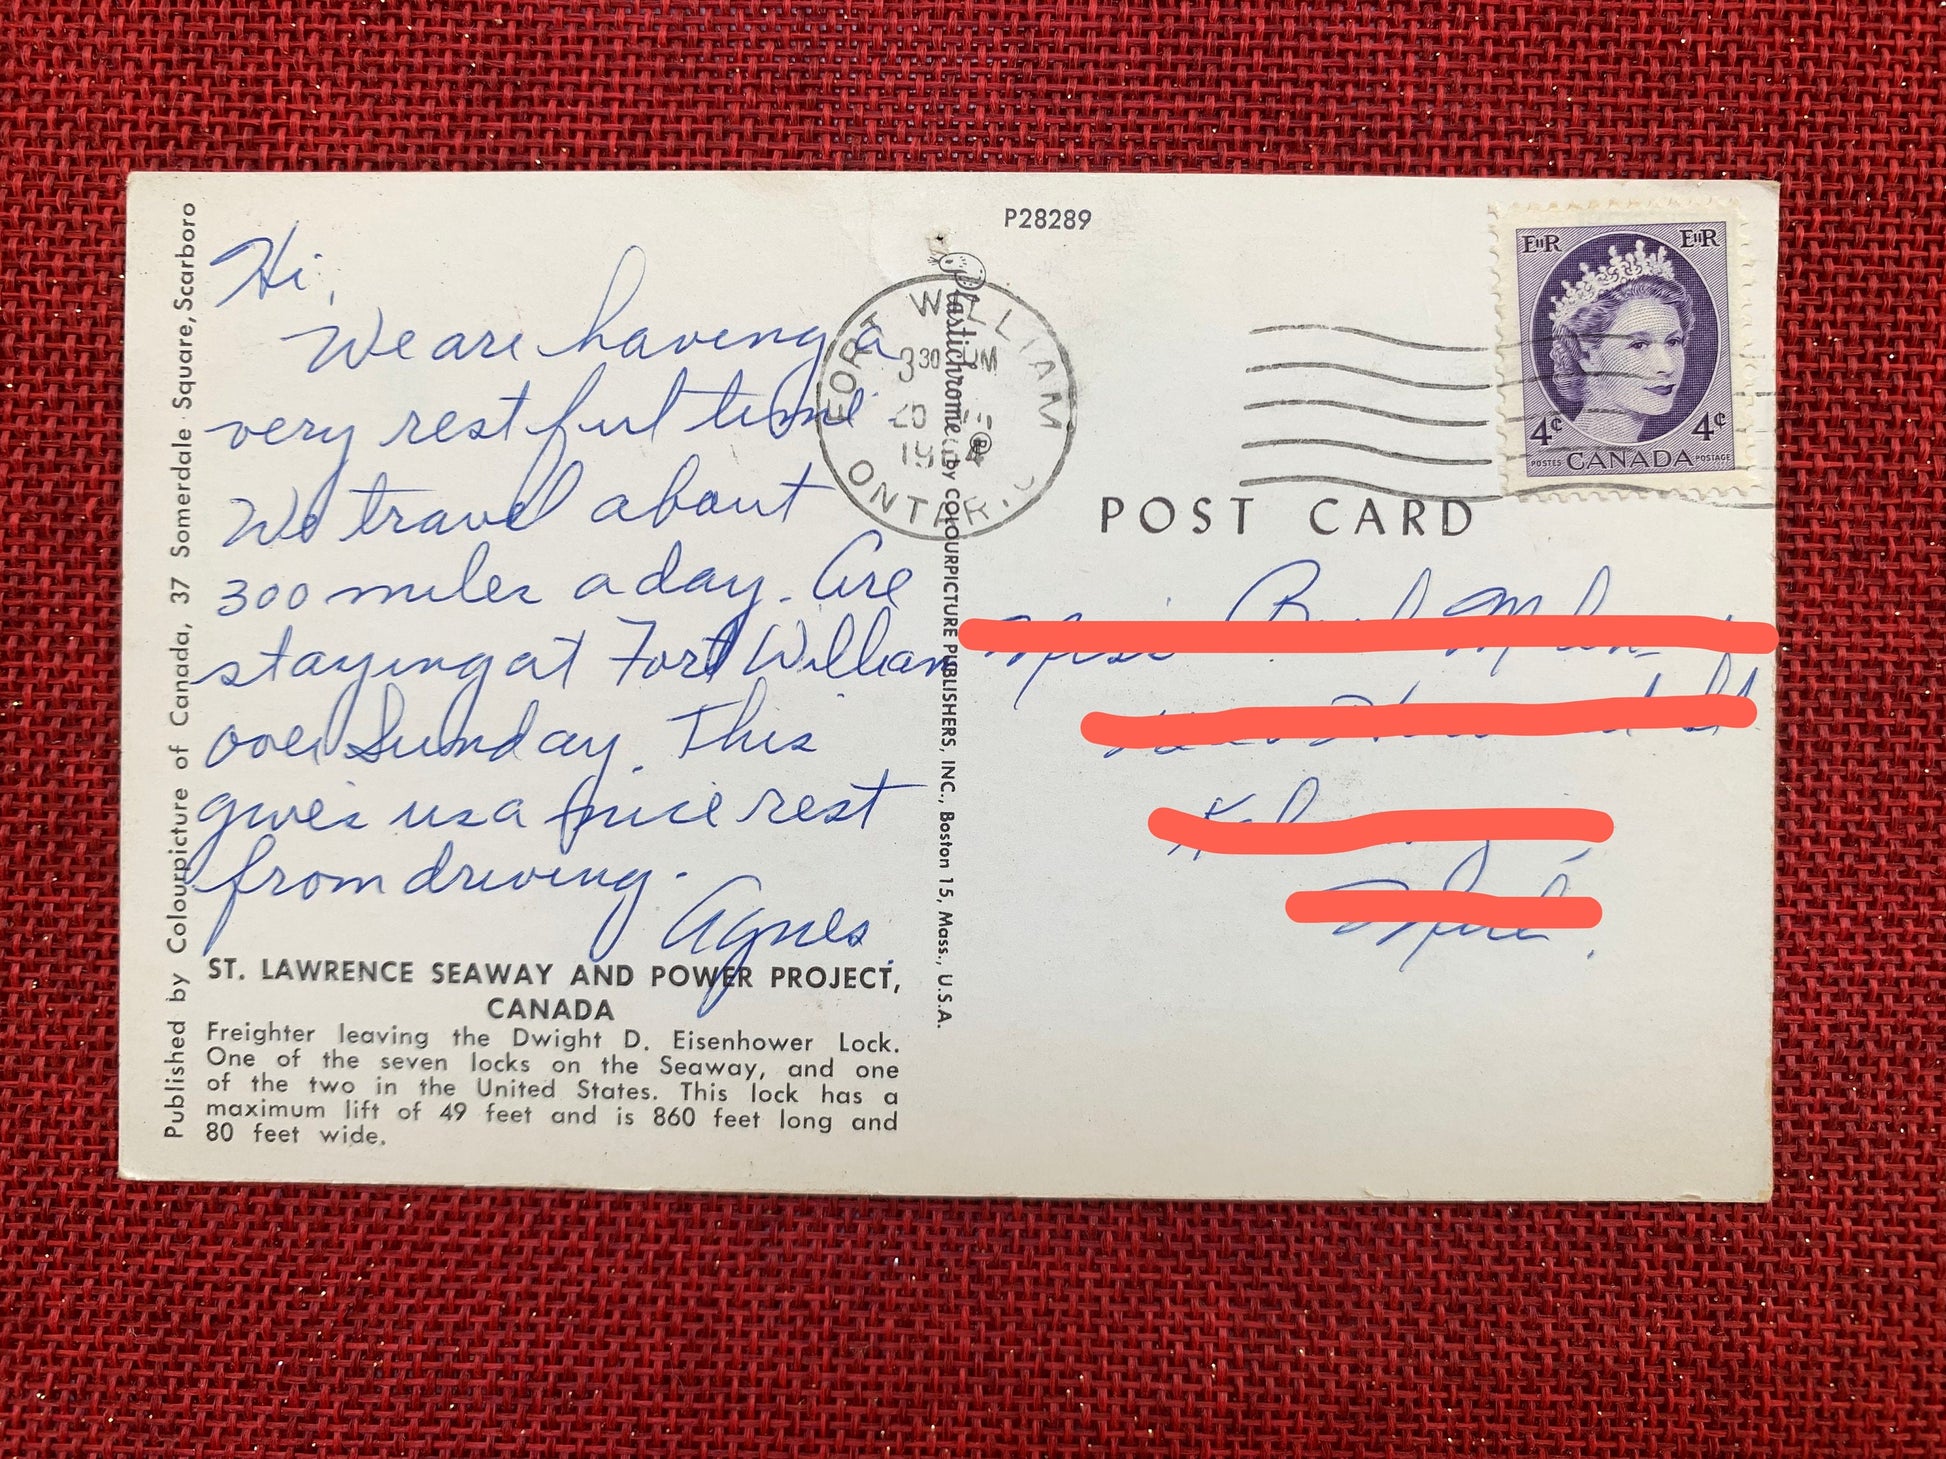 P28289
EIIR EIIR
4¢ 4¢
POSTES CANADA POSTAGE
FORT WILLIAM
3 30 PM
19
ONTARIO
POST CARD
Hi,
We are having a
very restful time
We travel about
300 miles a day. Are
staying at Fort William
over Sunday. This
gives us a nice rest
from driving.
Agnes.
ST. LAWRENCE SEAWAY AND POWER PROJECT,
CANADA
Freighter leaving the Dwight D. Eisenhower Lock.
One of the seven locks on the Seaway, and one
of the two in the United States. This lock has a
maximum lift of 49 feet and is 860 feet long and
80 feet wide.
Published by Colourpicture of Canada, 37 Somerdale Square, Scarboro
Plastichrome® by COLOURPICTURE PUBLISHERS, INC., Boston 15, Mass., U.S.A.